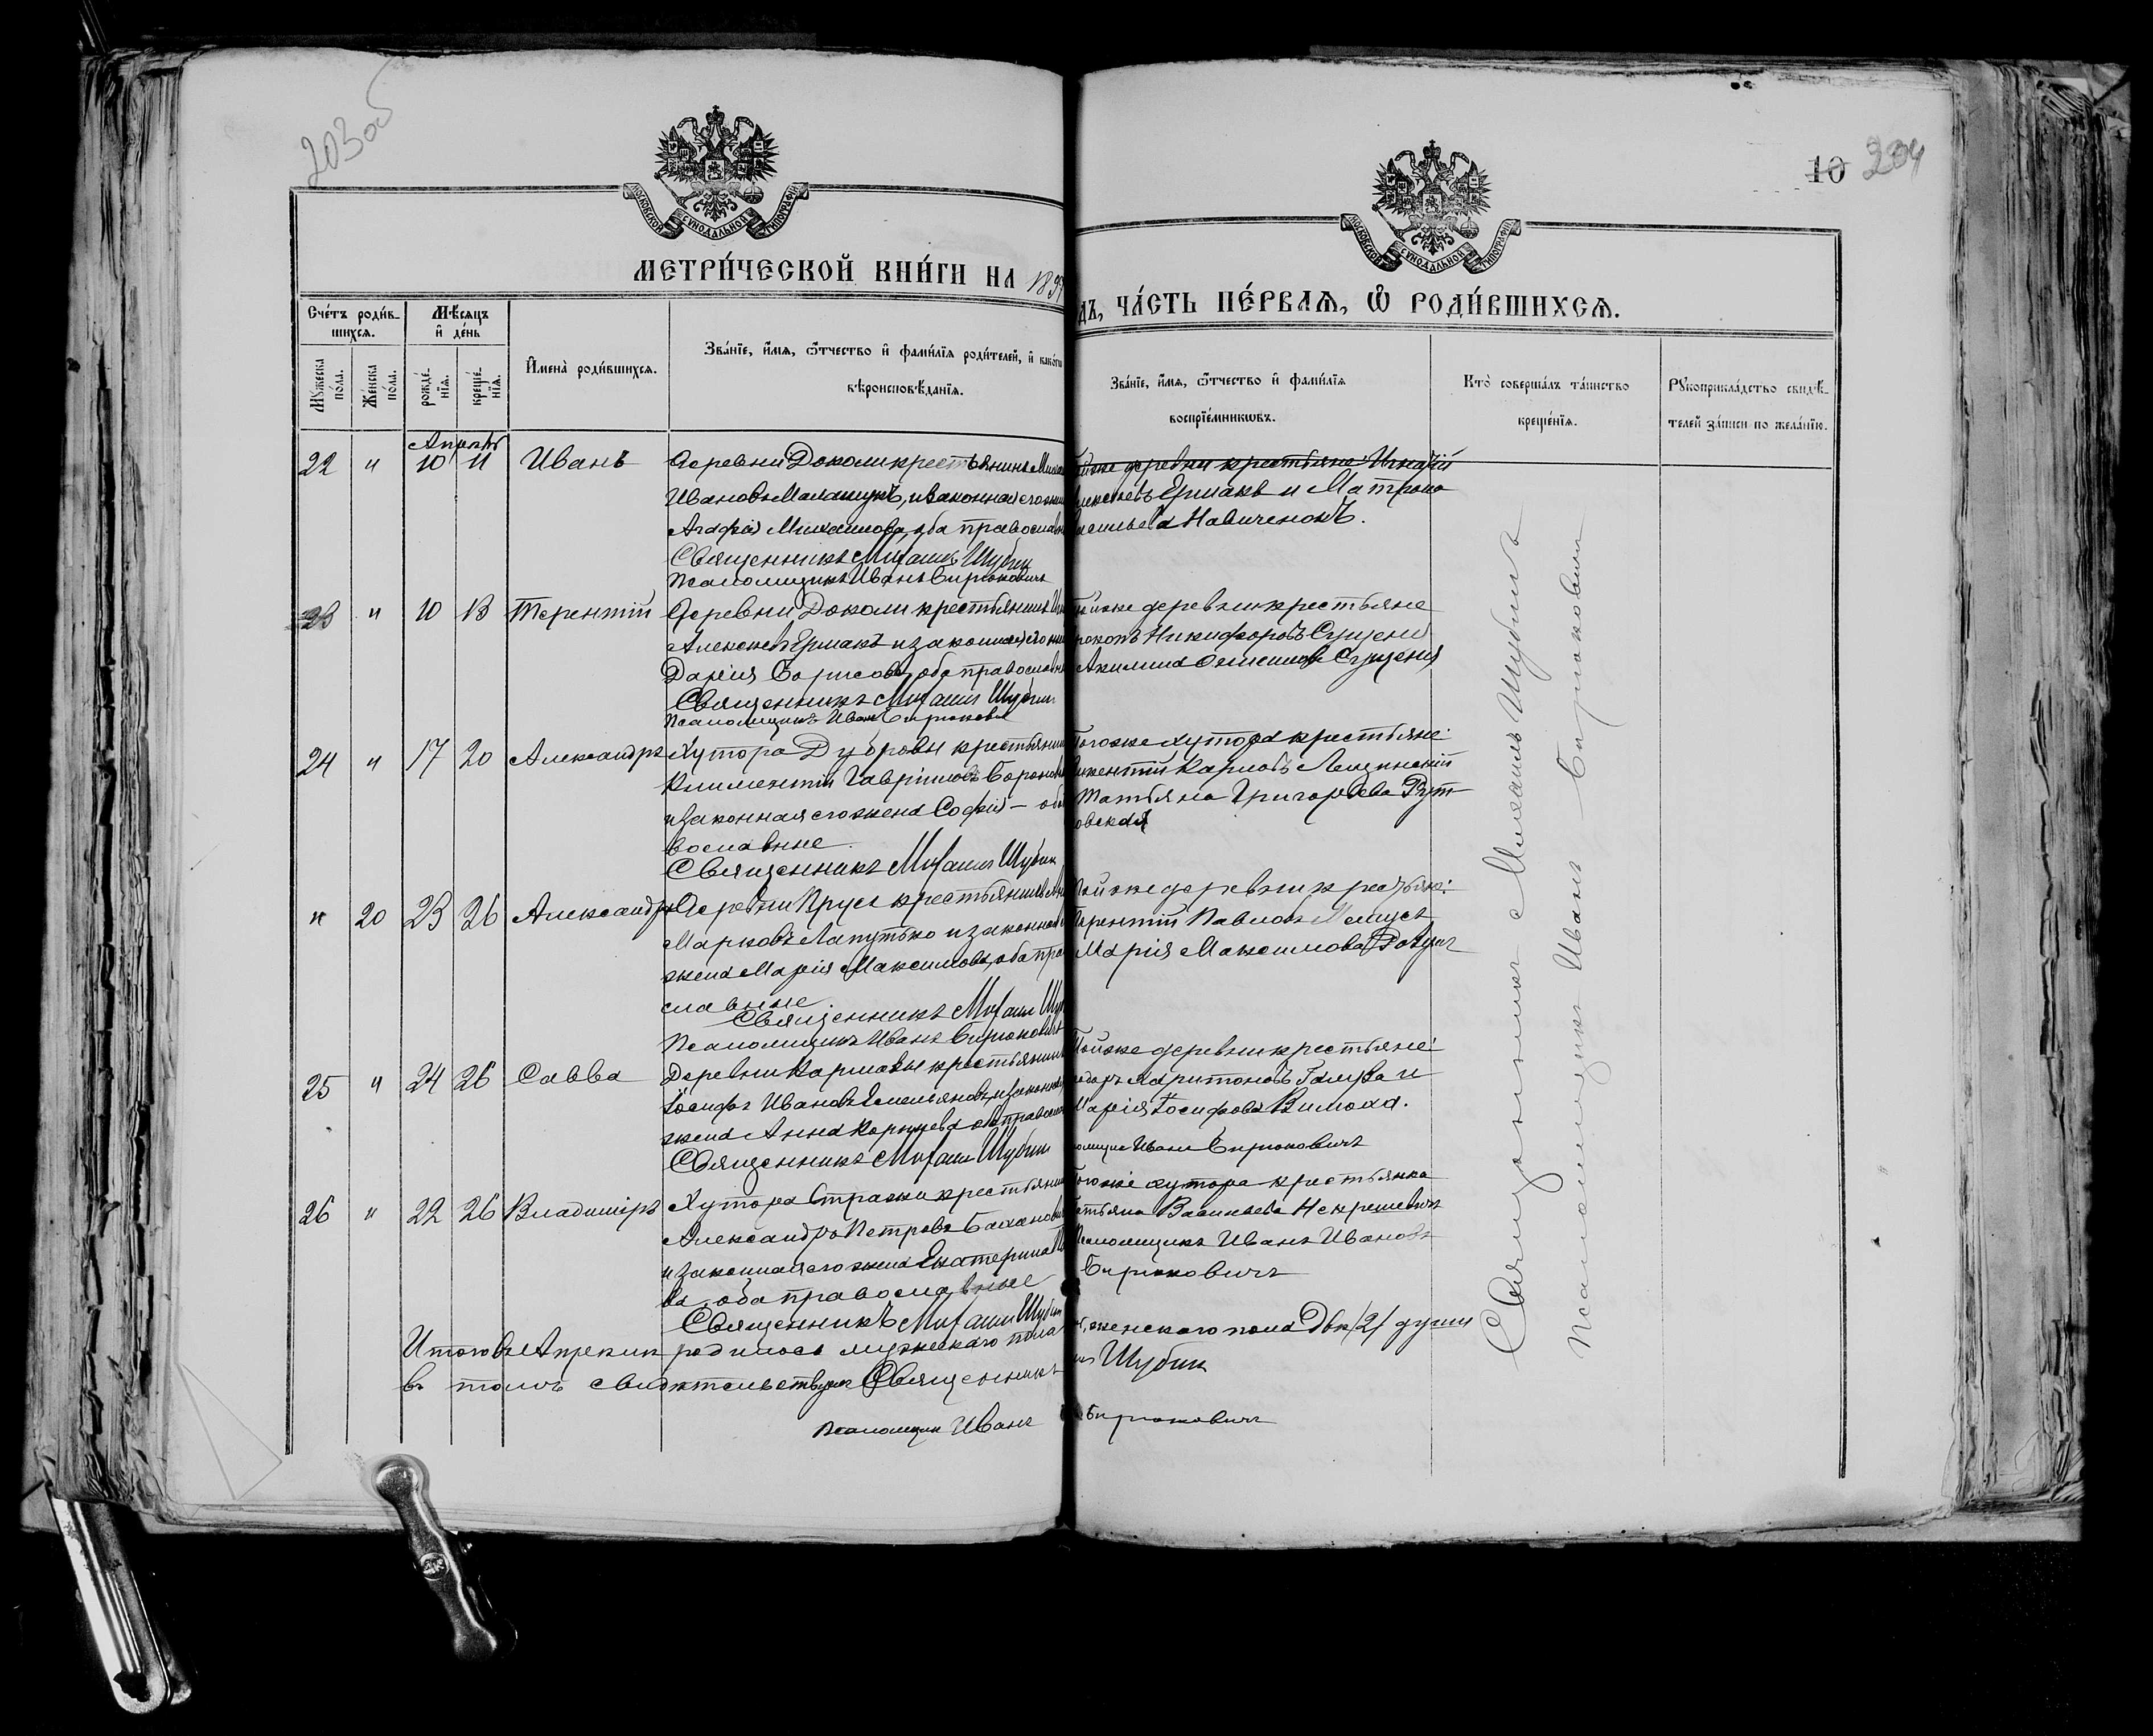 203 об
10 204
МОСКОВСКОЙ СѴНОДАЛЬНОЙ ТИПОГРАФІИ
МОСКОВСКОЙ СѴНОДАЛЬНОЙ ТИПОГРАФІИ
МЕТРИ́ЧЕСКОЙ КНИ́ГИ НА 189
ДЪ, ЧА́СТЬ ПЕ́РВАѦ, Ѡ҆ РОДИ́ВШИХСѦ.
Сче́тъ роди́в-
шихся.
Мѣ́сяцъ
и҆ де́нь
Мꙋ́жеска по́ла.
Же́нска по́ла.
рожде́-
нїѧ.
креще́-
нїѧ.
И҆мена̀ роди́вшихсѧ.
Зва́нїе, и҆́мѧ, ѻ҆́тчество и҆ фами́лїѧ роди́телей, и҆ како́гѡ
вѣроисповѣ́данїѧ.
Зва́нїе, и҆́мѧ, ѻ҆́тчество и҆ фами́лїѧ
воспрїе́мникѡвъ.
Кто̀ соверша́лъ та́инство
креще́нїѧ.
Рꙋкоприкла́дство свидѣ́-
телей за́писи по жела́нїю.
Апрѣль
22 " 10 11 Иванъ Деревни Доколи крестьянинъ
Ивановъ Малашукъ, и законная его жена
Агафія Михаилова, оба православн
Священникъ Михаилъ Шубин
Псаломщикъ Иванъ Бирюковичъ
Тойже деревни крестьяне: Игнатій
Алексѣевъ Ермакъ и Матрона
Васильева Навиченокъ.
23 " 10 13 Терентій Деревни Доколи крестьянинъ
Алексѣевъ Ермакъ и законная его жен
Дарія Борисова, оба православн
Священникъ Михаилъ Шубинъ
Псаломщикъ Иванъ Бирюковичъ
Тойже деревни крестьяне
Никифоровъ Сущеня
Акилина Сущеня
24 " 17 20 Александръ Хутора Дубровы крестьянин
Климентій Гавріиловъ
и законная его жена Софія — оба
вославные.
Священникъ Михаилъ Шубин
Тогоже хутора крестьяне:
Викентій Карловъ Лещинскій
Татьяна Григорьева Рут-
ковская
" 20 23 26 Александра Деревни Прусъ крестьянинъ
Марковъ Лапутько и законная
жена Марія Максимова, оба пра
славные.
Священникъ Михаилъ Шу
Псаломщикъ Иванъ Бирюковичъ
Тойже деревни крестьяне:
Терентій Павловъ
Марія Максимова
25 " 24 26 Савва Деревни крестьянин
Іосифъ Ивановъ Емельяновъ, и законная
жена Анна Корнѣева оба православ
Священникъ Михаилъ Шубинъ
Тойже деревни крестьяне:
Харитоновъ Голуба и
Марія Іосифова
Иванъ Бирюковичъ
26 " 22 26 Владиміръ Хутора Стражи крестьянин
Александръ Петровъ
и законная его жена Екатерина
ва, оба православные
Священникъ Михаилъ Шубин
Тогоже хутора крестьянка
Татьяна Васильева Некрашевичъ
Псаломщикъ Иванъ Ивановъ
Бирюковичъ
Итого въ Апрелѣ родилось мужескаго пола
женскаго пола двѣ /2/ души
въ томъ свидѣтельствуемъ Священникъ
Шубин
Псаломщикъ Иванъ Бирюковичъ
Священникъ Михаилъ Шубинъ
Псаломщикъ Иванъ Бирюковичъ